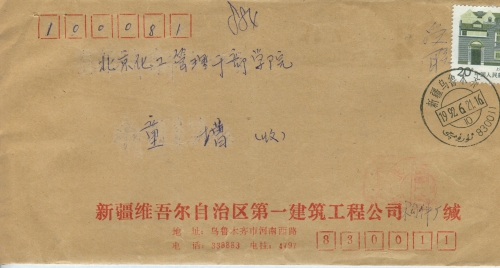 100081
884
北京化工管理干部学院
20
新疆乌鲁木齐
1992.6.21.16
10
830011
童增(收)
新疆维吾尔自治区第一建筑工程公司 构件厂 缄
地 址:乌鲁木齐市河南西路
电 话:
830011